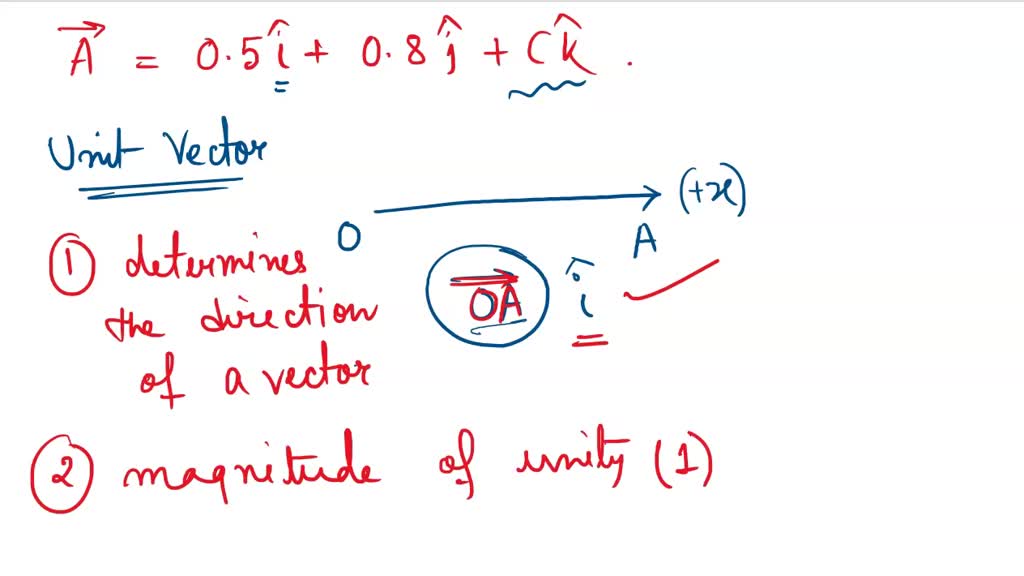 A⃗ = 0.5î + 0.8ĵ + Ck̂ .
Unit Vector
(+x)
O
A
① determines
the direction
of a vector
OA⃗ î
② magnitude of unity (1)